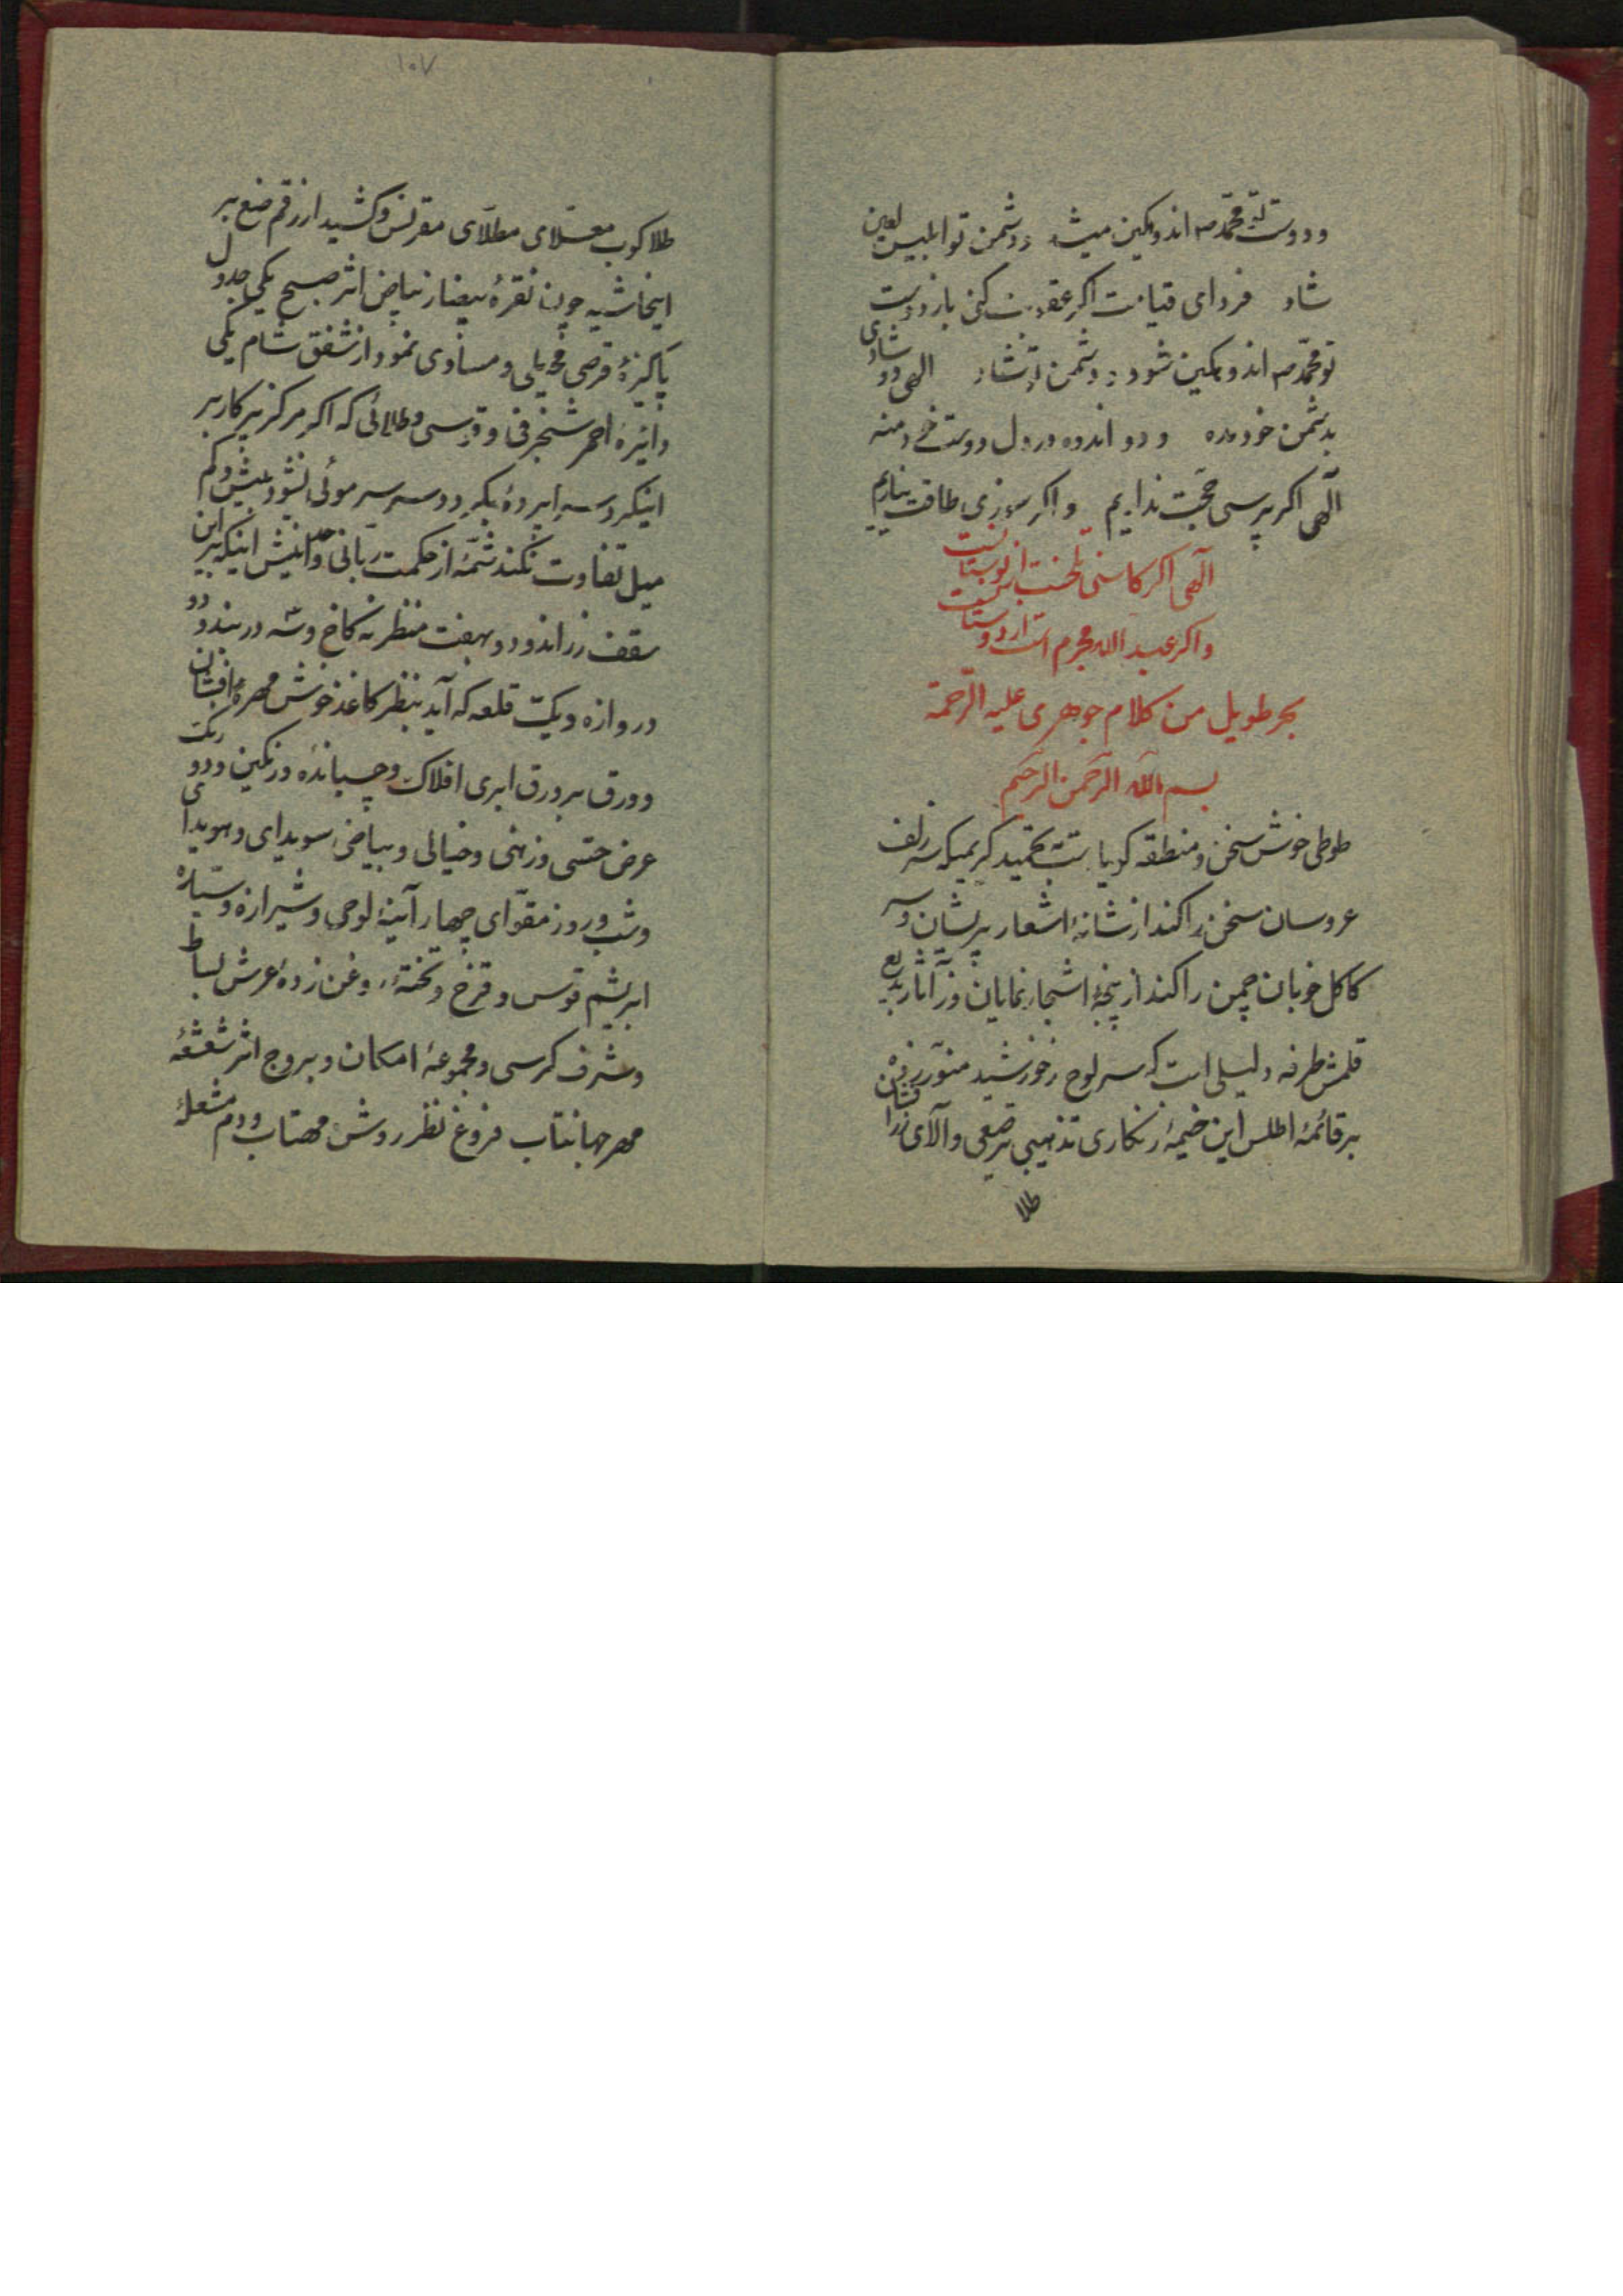 و دوست تو محمد ص اندوهگین میشد و دشمن تو ابلیس لعین
شاد فردای قیامت اگر عقوبت کنی باز دوست
تو محمد ص اندوهگین شود و دشمن تو شاد الهی دو شادی
بدشمن خود مده و دو اندوه در دل دوست خود منه
آلهی اگر پرسی حجت نداریم و اگر سوزی طاقت نیاریم
آلهی اگر کاسنی تلخست از بوستانست
و اگر عبدالله مجرم است از دوستانست
بحر طویل من کلام جوهری علیه الرحمة
بسم الله الرحمن الرحیم
طوطی خوش سخن و منطقه گویاست بتحمید کریمیکه سر زلف
عروسان سخن را کند از شانهٔ اشعار پریشان و سر
کاکل خوبان چمن را کند از پنجهٔ اشجار نمایان وز آثار بدیع
قلمش طرفه دلیلی است که سر لوح ز خورشید منور زده
بر قائمهٔ اطلس این خیمهٔ زنگاری تذهیبی ترصیعی والای زرافشان
طلا
۱۰۷
طلا کوب معلای مطلای مقرنس و کشید از رقم صنع بر
اینحاشیه چون نقرهٔ بیضا ز بیاض اثر صبح یکی جدول
پاکیزهٔ قرصی و مساوی نمود از شفق شام یکی
دائرهٔ احمر شنجرفی و قوسی و طلائی که اگر مرکز پرکار بر
اینگردد سراپردهٔ بگردد سر موئی نشود بیش و کم
میل تفاوت نکند شمهٔ از حکمت ربانی و دانیش اینکه بر این
سقف زراندود و بهفت منظر نه کاخ و شه دربند دو
دروازه و یک قلعه که آید بنظر کاغذ خوش مهرهٔ افشان
دو ورق بر ورق ابری افلاک و چسپانده و رنگین و دو رنگ
عرض حسی و ذهنی و خیالی و بیاضی سویدای و هویدای
و شب و روز مقوای چهار آینهٔ لوحی و شیرازه و سیاره
ابریشم قوس و قزح و تختهٔ روغن زدهٔ عرش بساط
و شرف کرسی و مجموعهٔ امکان و بروج اثر شعشعهٔ
مهر جهانتاب فروغ نظر روش مهتاب و دم مشعلهٔ